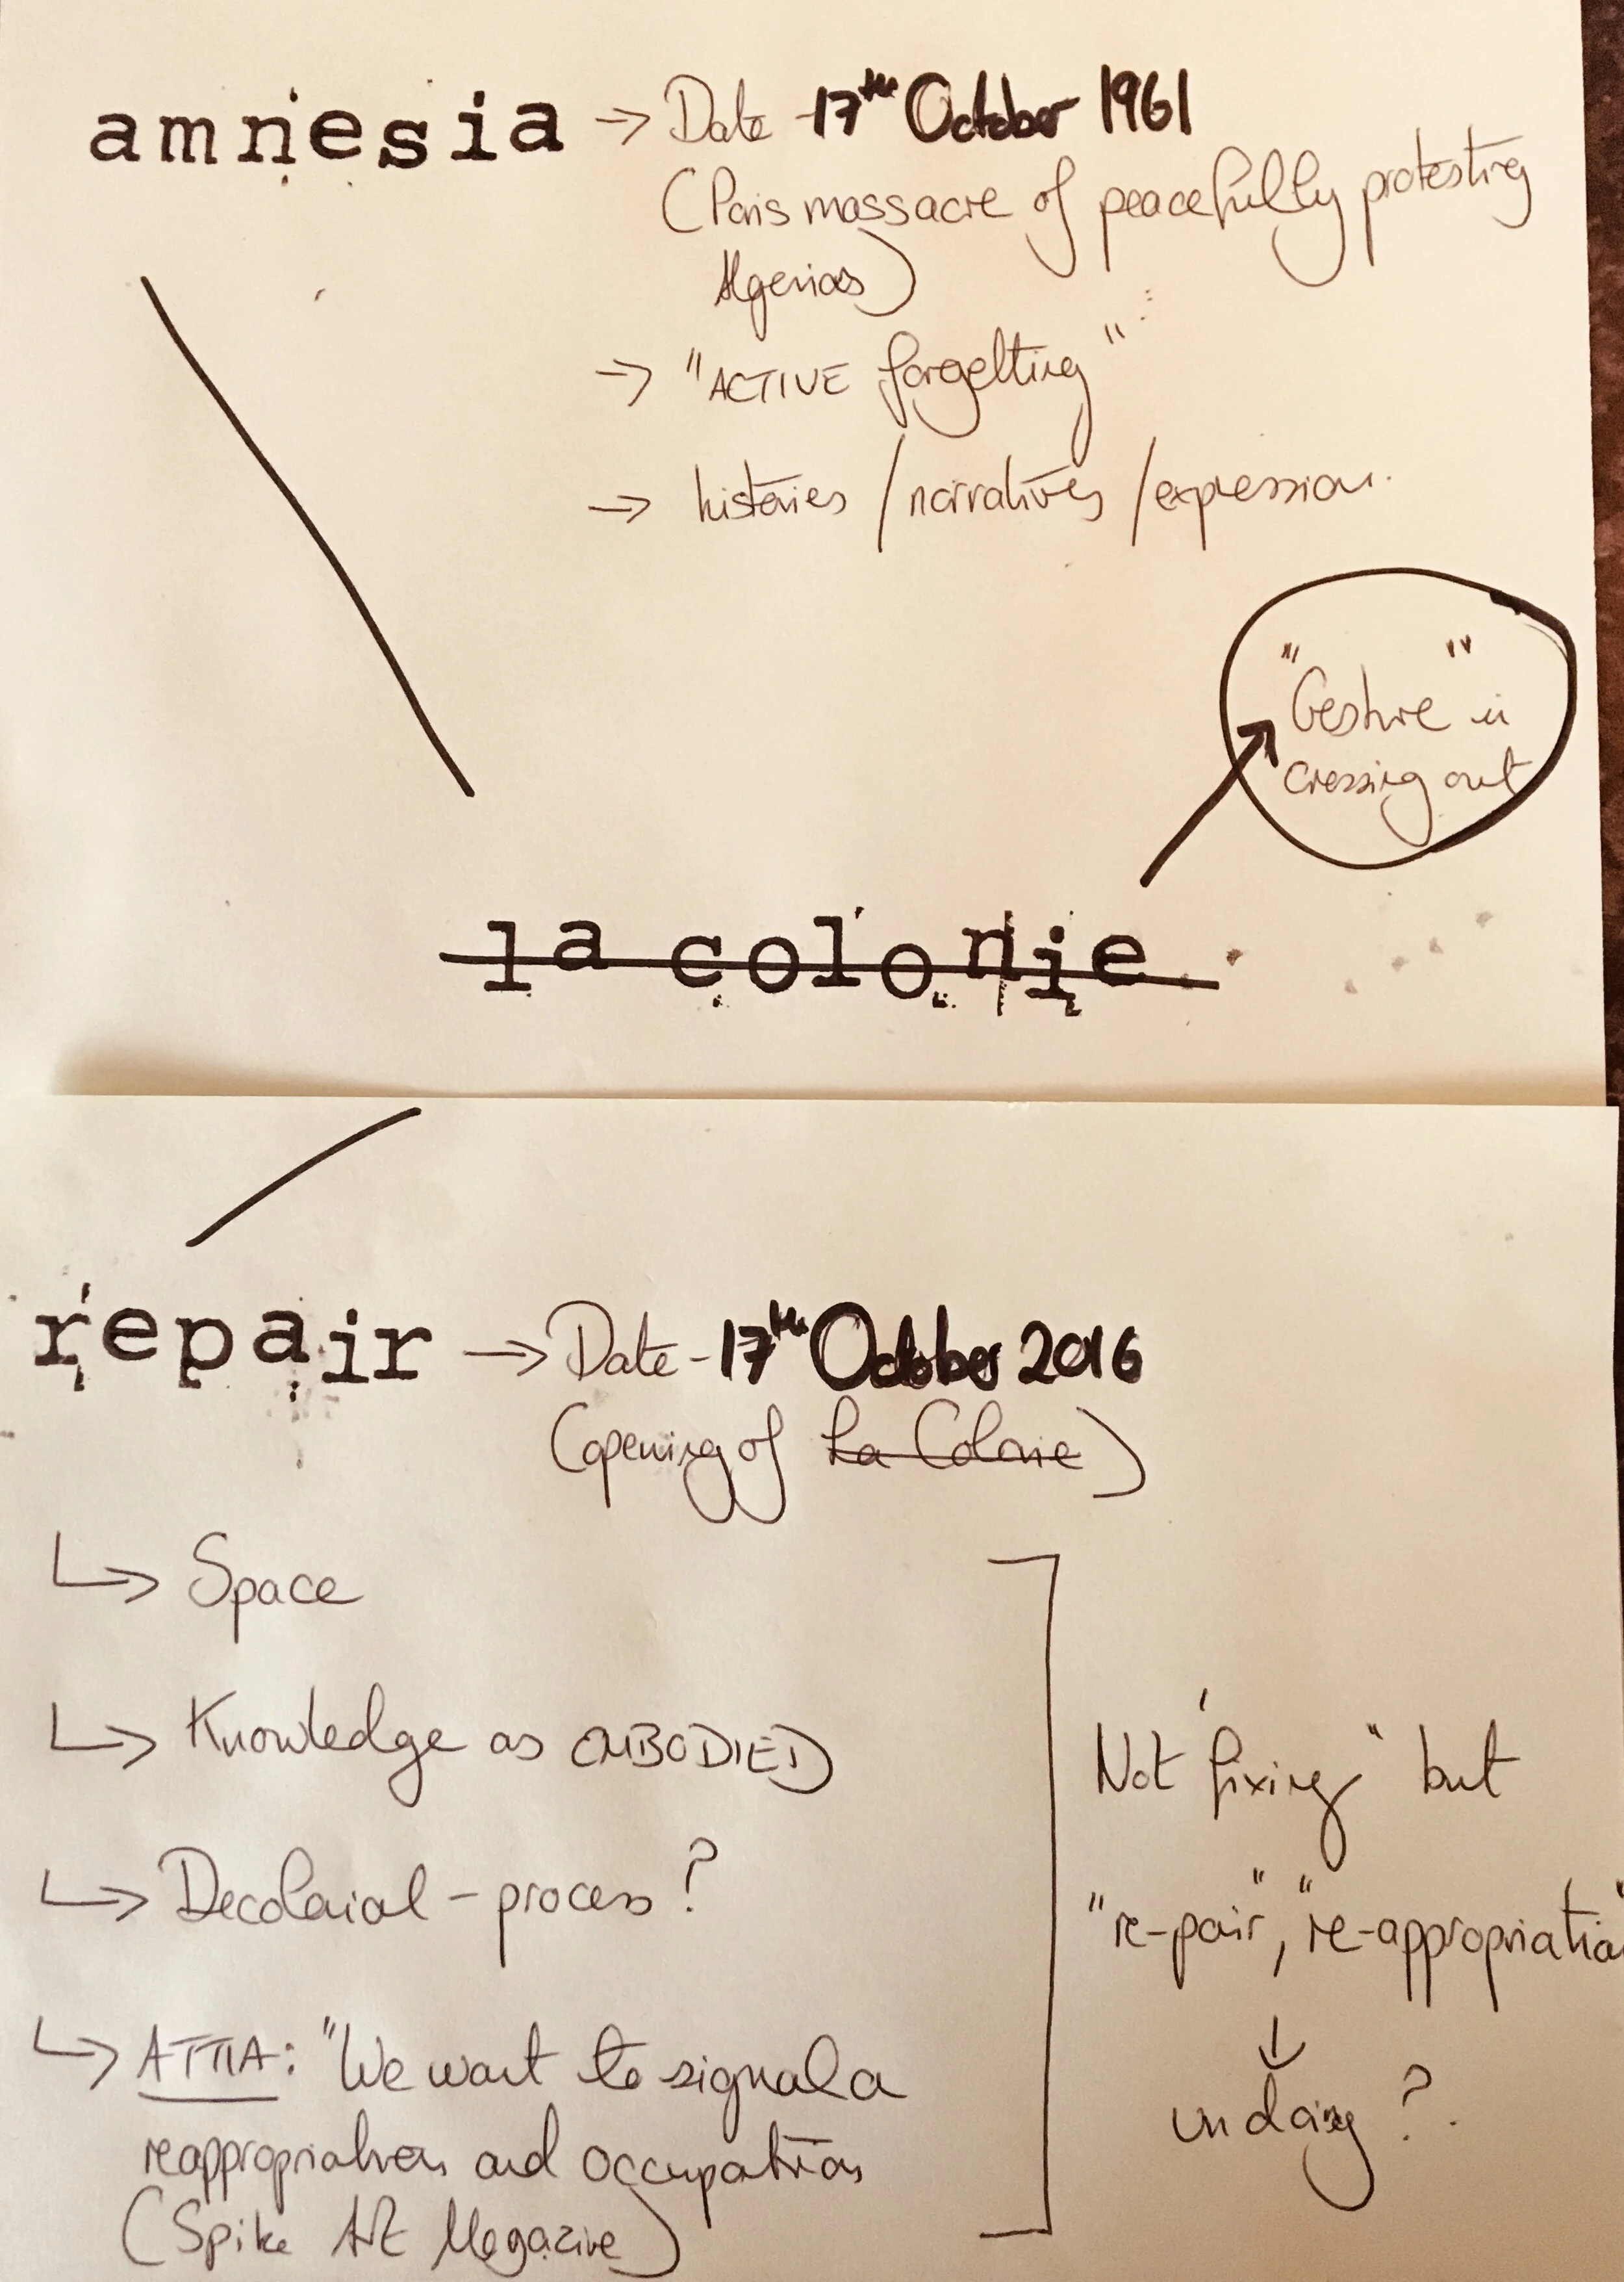 amnesia → Date - 17th October 1961
(Paris massacre of peacefully protesting
Algerias)
→ "ACTIVE forgetting"
→ histories / narratives / expression.
"Gesture" in
crossing out
la colonie
repair → Date - 17th October 2016
(opening of La Colonie)
↳ Space
↳ Knowledge as EMBODIED
↳ Decolonial - process?
↳ ATTIA: "We want to signal a
reappropriation and occupation
(Spike Art Magazine)
Not 'fixing" but
"re-pair", "re-appropriation"
↓
undoing?